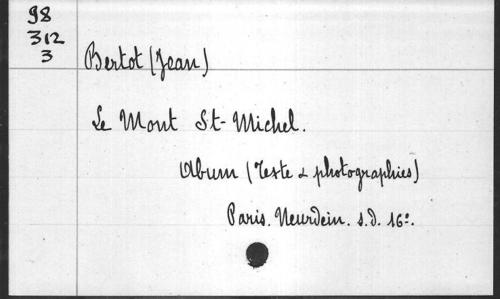 98
312
3
Bertot (Jean)
Le Mont St-Michel.
Album (Texte & photographies)
Paris. Neurdein. s.d. 16º.